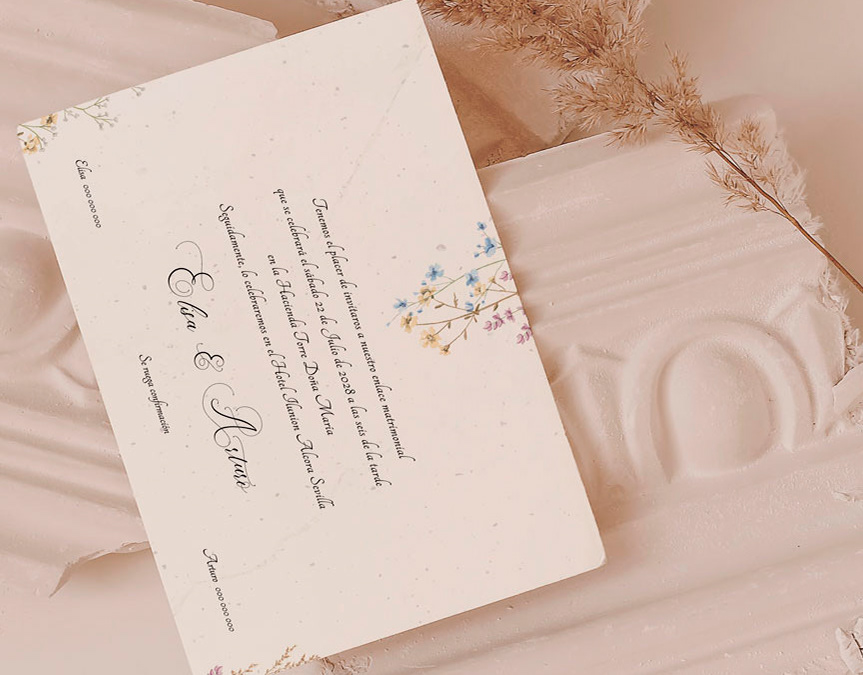 Tenemos el placer de invitaros a nuestro enlace matrimonial
que se celebrará el sábado 22 de Julio de 2028 a las seis de la tarde
en la Hacienda Torre Doña María
Seguidamente, lo celebraremos en el Hotel Ilunion Alcora Sevilla
Elisa & Arturo
Se ruega confirmación
Elisa 000 000 000
Arturo 000 000 000